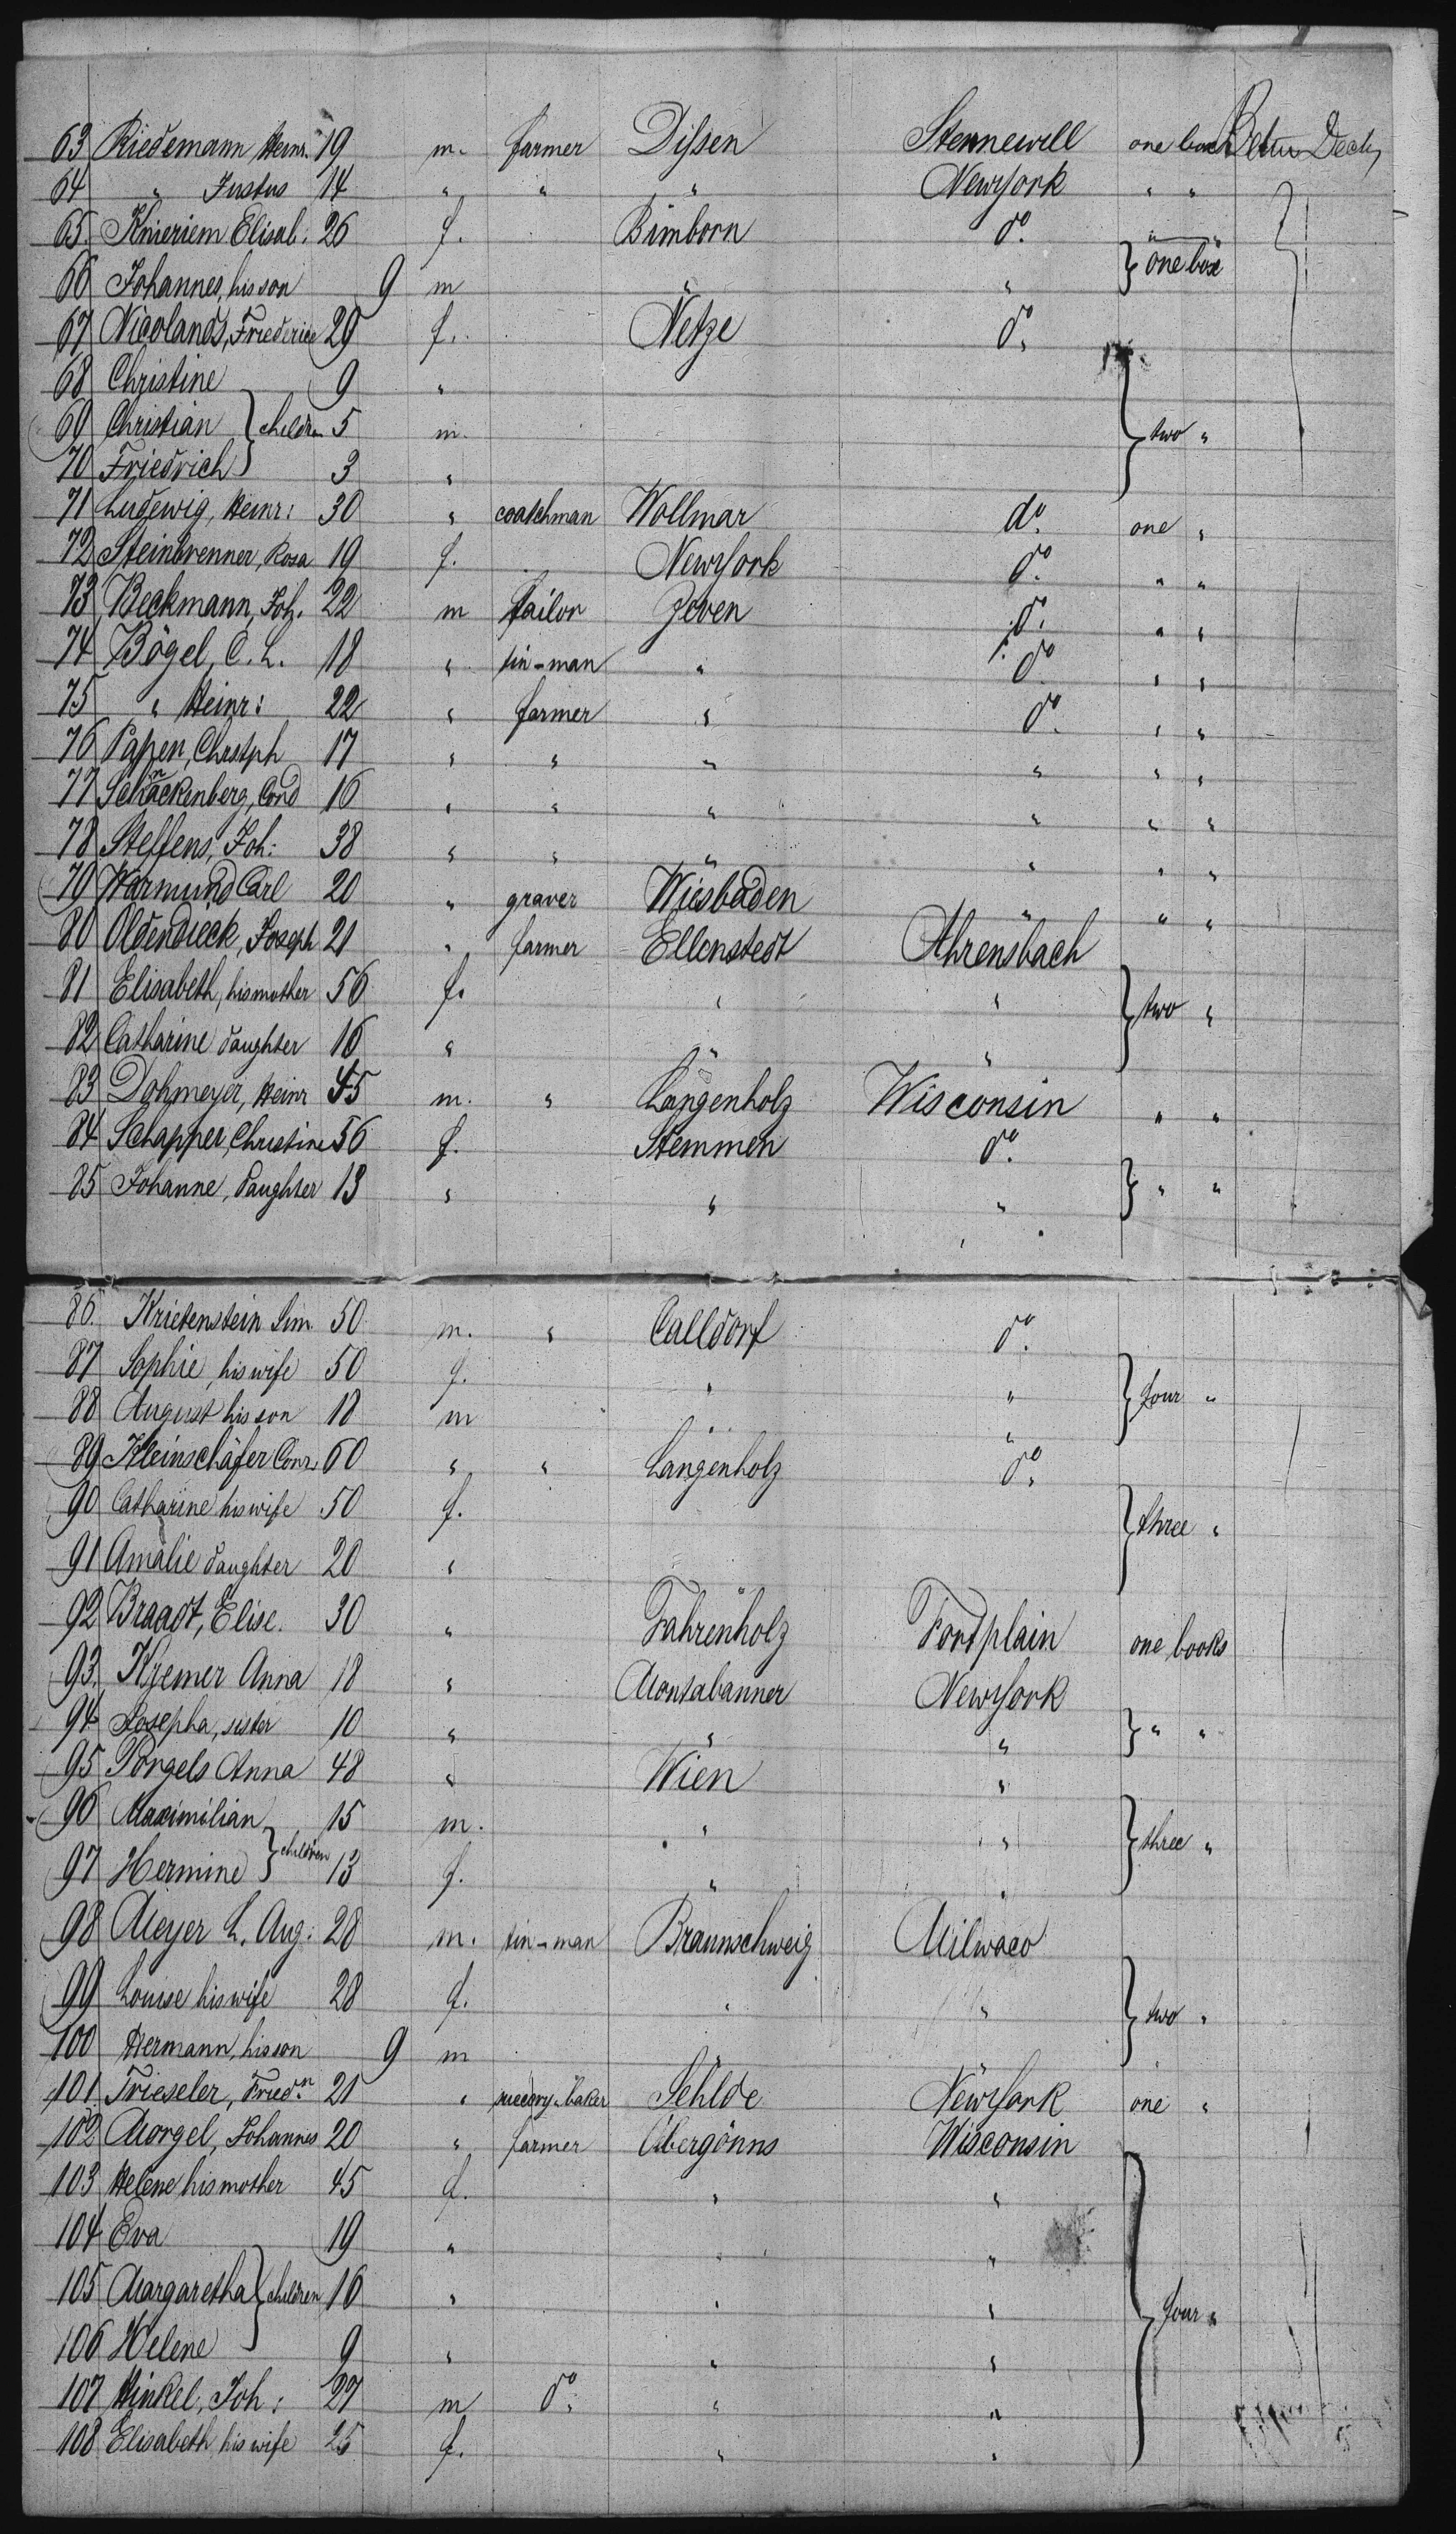 63 Riedemann Heinr. 19 m. farmer Dissen Stennewill one box Betw Deck,
64 " Justus 14 " " " New York " "
65. Knieriem Elisab. 26 f. Bimborn do. " "
66 Johannes, his son 9 m " " } one box
67 Nicolands, Friederice 29 f. Netze do.
68 Christine 9 "
69 Christian } children 5 m. } two "
70 Friedrich 3 "
71 Ludewig, Heinr: 30 " coatchman Wollmar do. one "
72 Steinbrenner, Rosa 19 f. New York do. " "
73 Beckmann, Joh. 22 m tailor Zeven do. " "
74 Bögel, C. L. 18 " tin-man " do " "
75 " Heinr: 22 " farmer " do. " "
76 Papen, Christph 17 " " " " " "
77 Schnackenberg, Cond 16 " " " " " "
78 Steffens, Joh: 38 " " " " " "
79 Warmund Carl 20 " graver Wiesbaden " " "
80 Oldendieck, Joseph 21 " farmer Ellenstedt Ahrensbach
81 Elisabeth, his mother 56 f. " " } two "
82 Catharine daughter 16 " " "
83 Dohmeyer, Heinr 45 m. " Langenholz Wisconsin " "
84 Schapper, Christine 56 f. Stemmen do.
85 Johanne, daughter 13 " " " } " "
86. Krietenstein Sim. 50 m. " Calldorf do.
87 Sophie, his wife 50 f. " " } four "
88 August his son 18 m " "
89 Kleinschäfer Conr. 60 " " Langenholz do.
90 Catharine his wife 50 f. } three "
91 Amalie daughter 20 "
92 Braadt, Elise. 30 " Fahrenholz Fortplain one books
93. Kremer Anna 18 " Montabanner New York
94 Josepha, sister 10 " " " } " "
95 Porgels Anna 48 " Wien "
96 Maximilian 15 m. " " } three "
97 Hermine } children 13 f. " "
98 Meyer L. Aug: 28 m. tin-man Braunschweig Milwaco
99 Louise his wife 28 f. " " } two "
100 Hermann, his son 9 m "
101. Frieseler, Friedn. 21 " baker Sehlde New York one "
102 Morgel, Johannes 20 " farmer Ebergönns Wisconsin
103 Helene his mother 45 f. " "
104 Eva 19 " " "
105 Margaretha } children 16 " " " } four "
106 Helene 9 " " "
107 Hinkel, Joh: 27 m do. " "
108 Elisabeth his wife 25 f. " "